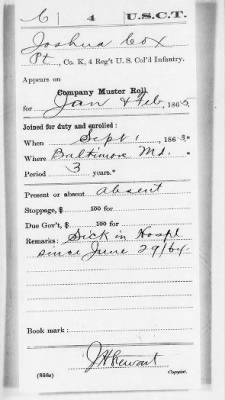 C | 4 | U.S.C.T.
Joshua Cox
Pt, Co. K, 4 Reg't U. S. Col'd Infantry.
Appears on
Company Muster Roll
for Jan & Feb, 1865.
Joined for duty and enrolled:
When Sept 1, 1863.*
Where Baltimore Md.
Period 3 years.*
Present or absent Absent
Stoppage, $ 100 for
Due Gov't, $ 100 for
Remarks: Sick in Hospl
since June 29/64.
Book mark:
J H Stewart
(858c) Copyist.